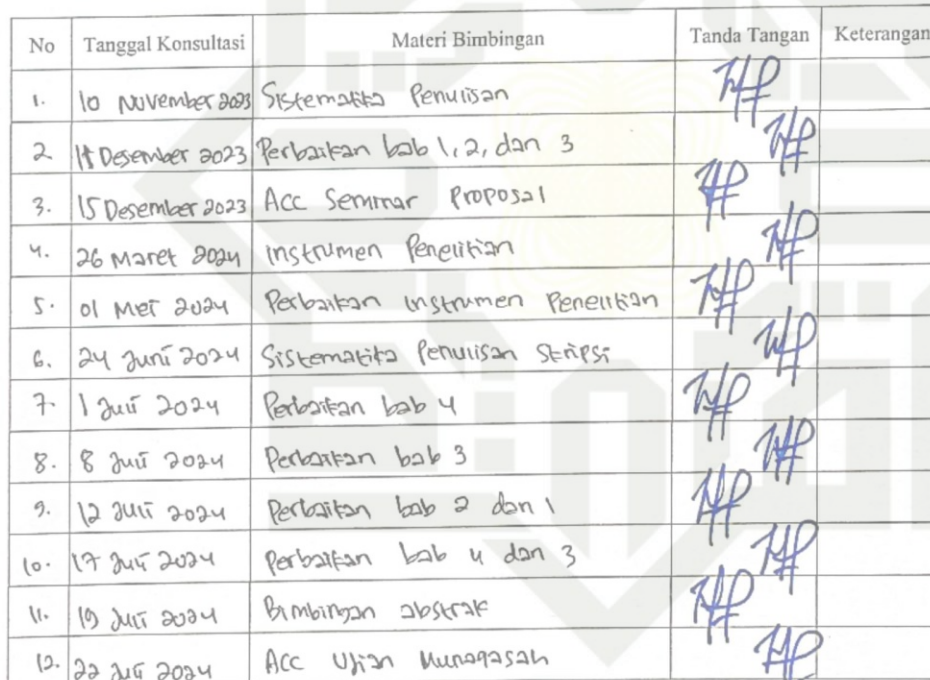 No Tanggal Konsultasi Materi Bimbingan Tanda Tangan Keterangan
1. 10 November 2023 Sistematika Penulisan
2 11 Desember 2023 Perbaikan bab 1, 2, dan 3
3. 15 Desember 2023 Acc Seminar Proposal
4. 26 Maret 2024 instrumen Penelitian
5. 01 Mei 2024 Perbaikan instrumen Penelitian
6. 24 Juni 2024 Sistematika Penulisan Skripsi
7. 1 Juli 2024 Perbaikan bab 4
8. 8 Juli 2024 Perbaikan bab 3
9. 12 Juli 2024 Perbaikan bab 2 dan 1
10. 17 Juli 2024 Perbaikan bab 4 dan 3
11. 19 Juli 2024 Bimbingan abstrak
12. 22 Juli 2024 Acc Ujian Munaqasah